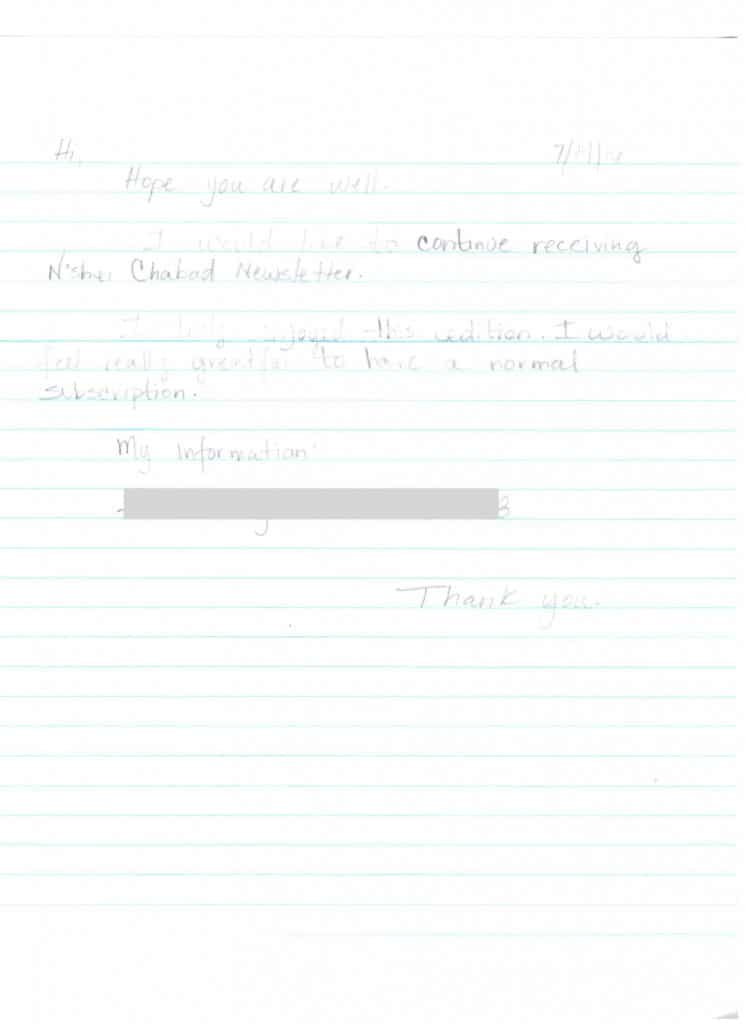 Hi,
Hope you are well.
I would like to continue receiving
N'shei Chabad Newsletter.
I enjoyed this edition. I would
feel really greatful to have a normal
subscription.
My information:
3
Thank you.